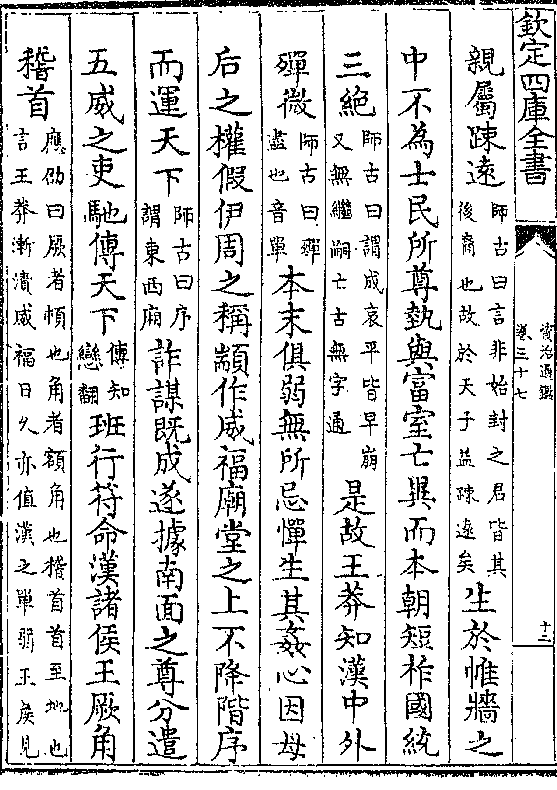 欽定四庫全書
資治通鑑
卷三十七
十二
親屬疎遠師古曰言非始封之君皆其後裔也故於天子益疎遠矣生於惟牆之
中不為士民所尊埶與富室亡異而本朝短祚國統
三絶師古曰謂成哀平皆早崩又無繼嗣亡古無字通是故王莽知漢中外
殫微師古曰殫盡也音單本末俱弱無所忌憚生其姦心因母
后之權假伊周之稱顓作威福廟堂之上不降階序
而運天下師古曰序謂東西廂詐謀既成遂據南面之尊分遣
五威之吏馳傳天下傳知戀翻班行符命漢諸侯王厥角
稽首應劭曰厥者頓也角者額角也稽首首至地也言王莽漸漬威福日久亦值漢之單弱王侯見